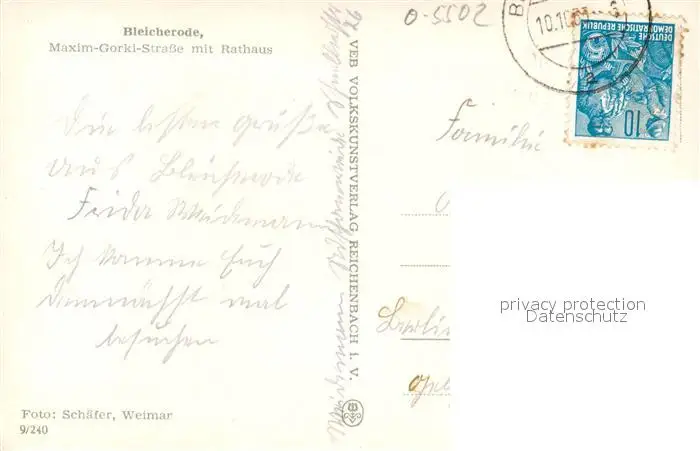 Bleicherode,
Maxim-Gorki-Straße mit Rathaus
Die besten Grüße
aus Bleicherode
Frida Weidemann
Ich komme Euch
demnächst mal
besuchen
Foto: Schäfer, Weimar
9/240
VEB VOLKSKUNSTVERLAG REICHENBACH i. V.
Weidemann
0-5502
10.10
DEUTSCHE
DEMOKRATISCHE REPUBLIK
10
Familie
Berlin
privacy protection
Datenschutz